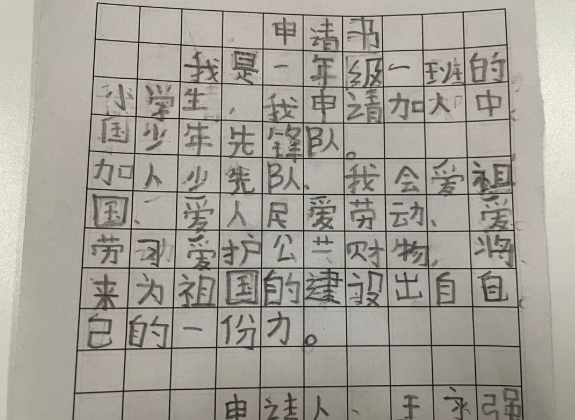 申请书
我是一年级一班的
小学生,我申请加入中
国少年先锋队。
加人少先队、我会爱祖
国、爱人民爱劳动、爱
劳动爱护公共财物,将
来为祖国的建设出自自
己的一份力。
申请人、王永强